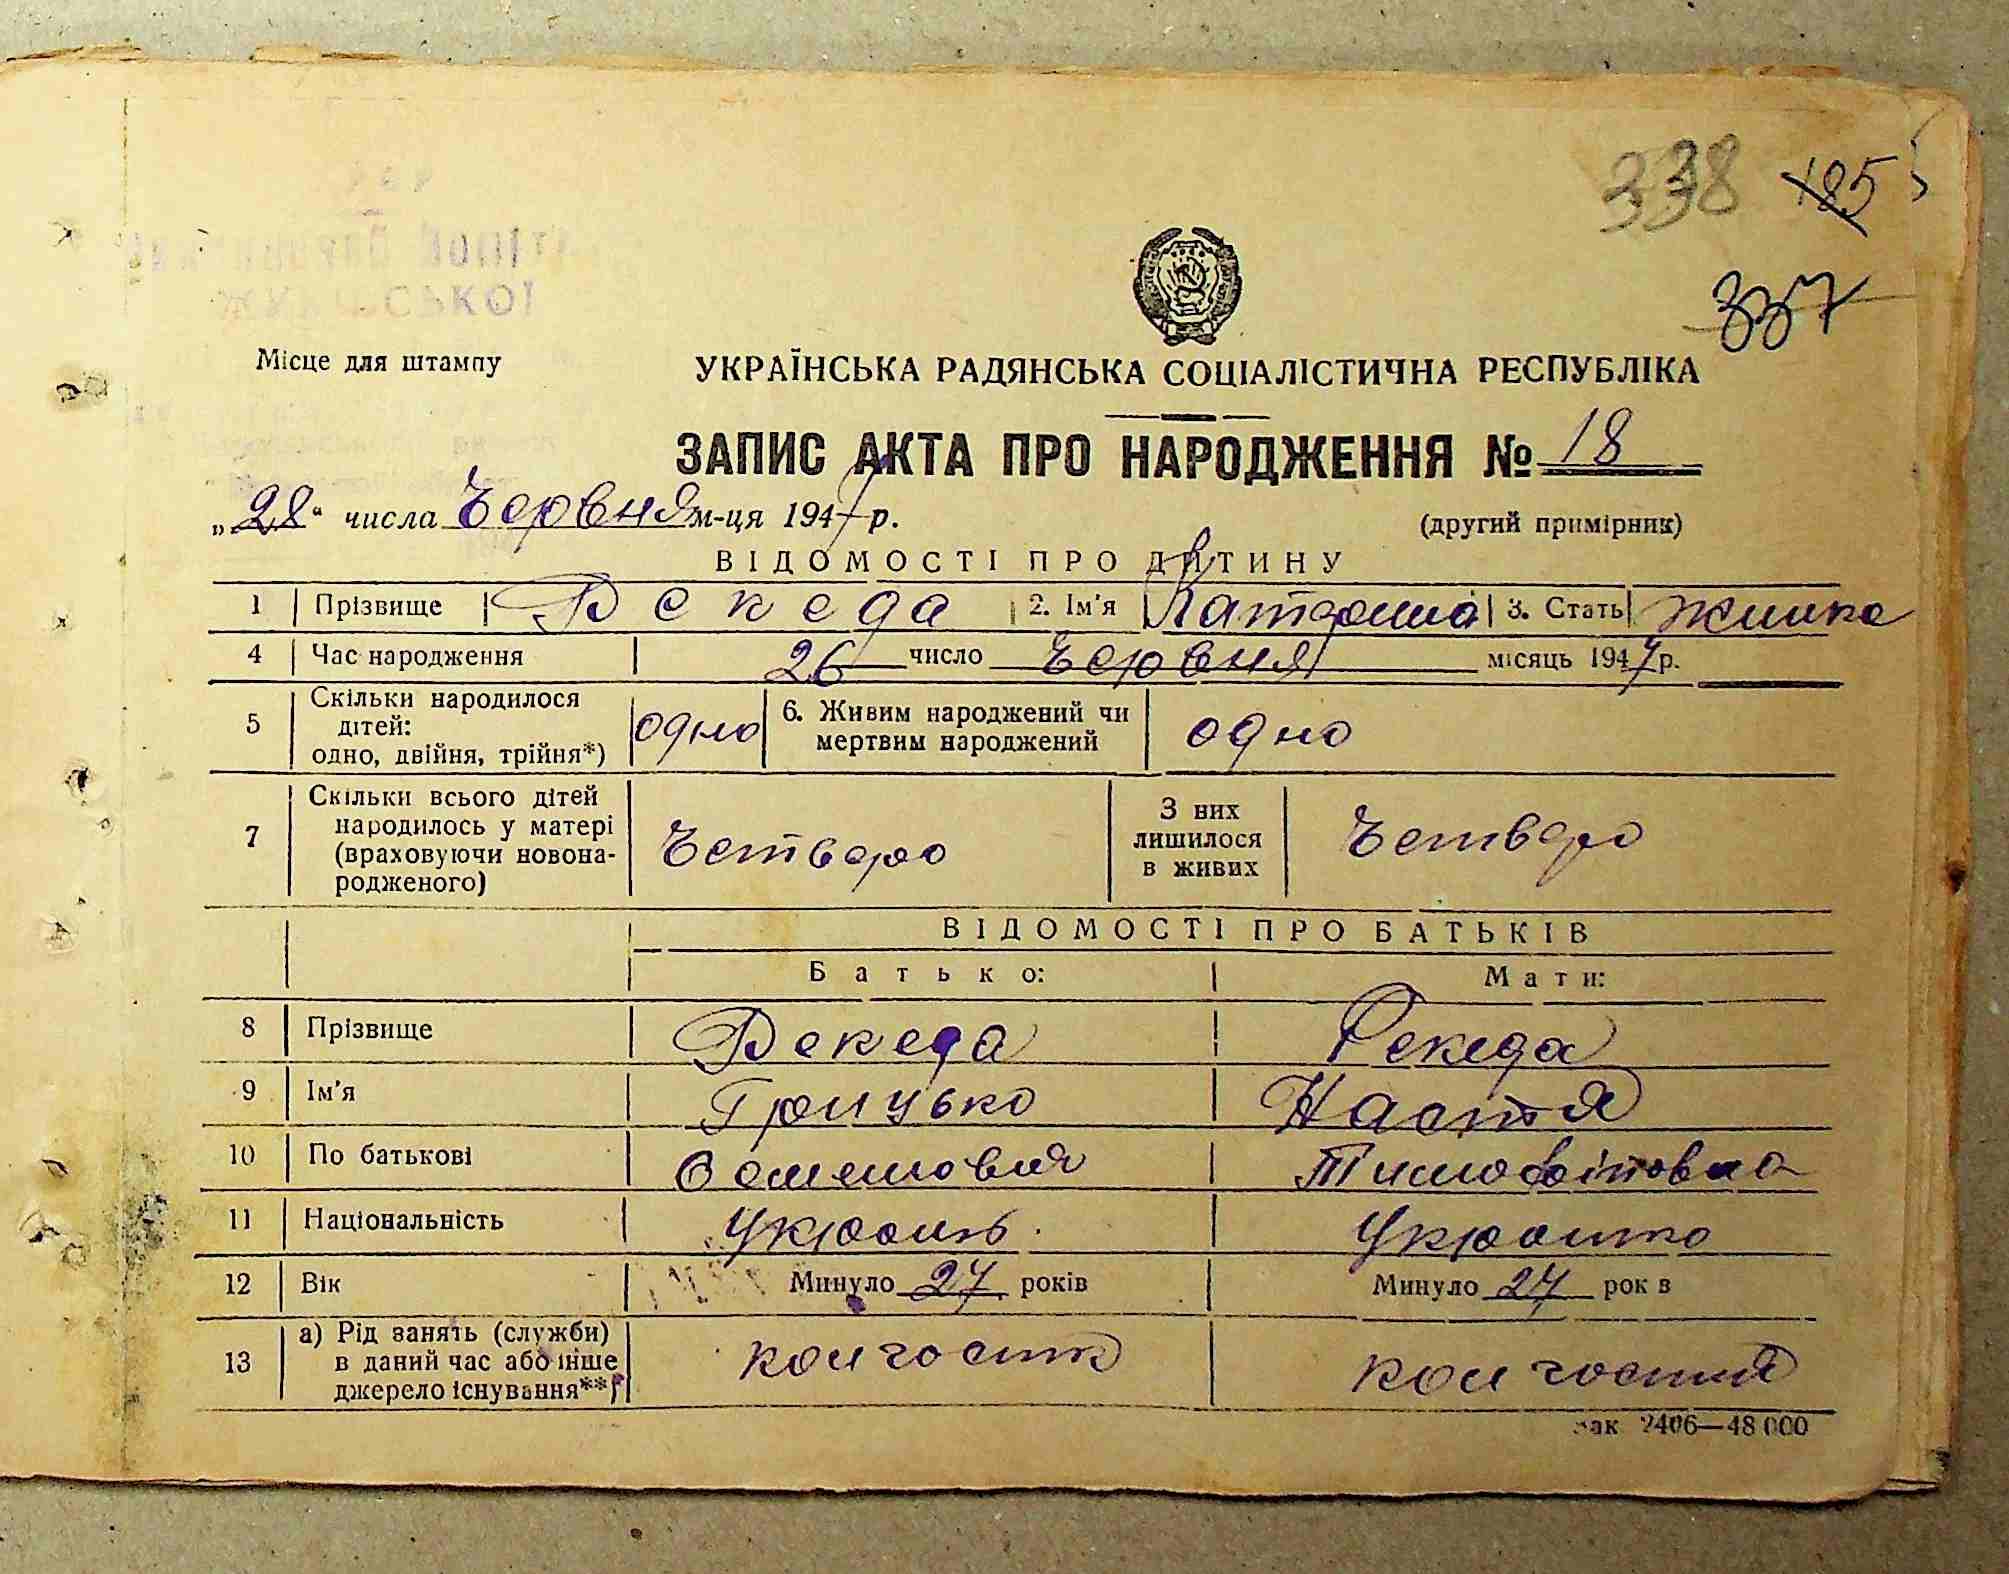 338 185
337
Місце для штампу
УКРАЇНСЬКА РАДЯНСЬКА СОЦІАЛІСТИЧНА РЕСПУБЛІКА
ЗАПИС АКТА ПРО НАРОДЖЕННЯ № 18
„28“ числа Червня м-ця 1947 р.
(другий примірник)
ВІДОМОСТІ ПРО ДИТИНУ
1 Прізвище Рекеда 2. Ім'я Катерина 3. Стать жинка
4 Час народження 26 число Червня місяць 1947 р.
5 Скільки народилося дітей: одно, двійня, трійня*) одно 6. Живим народжений чи мертвим народжений одно
7 Скільки всього дітей народилось у матері (враховуючи новонародженого) Четверо З них лишилося в живих Четверо
ВІДОМОСТІ ПРО БАТЬКІВ
Батько: Мати:
8 Прізвище Рекеда Рекеда
9 Ім'я Грицько Настя
10 По батькові Семенович Тимофіїовна
11 Національність Українь. Украінка
12 Вік Минуло 27 років Минуло 27 рок в
13 а) Рід занять (служби) в даний час або інше джерело існування**) колгоспк колгоспня
зак 2406—48 000